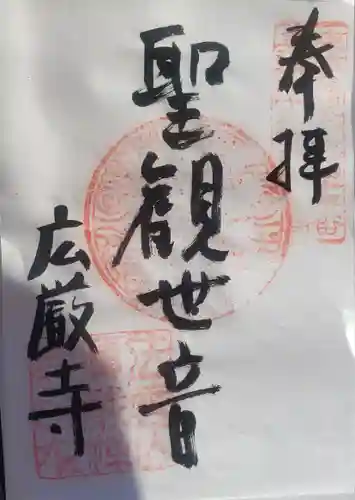 奉拝
聖観世音
広厳寺